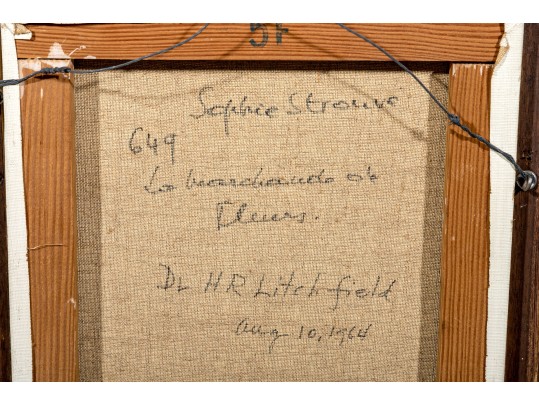 57
Sophie Strouvé
649
La marchande de
Fleurs.
Dr H R Litchfield
Aug 10, 1964